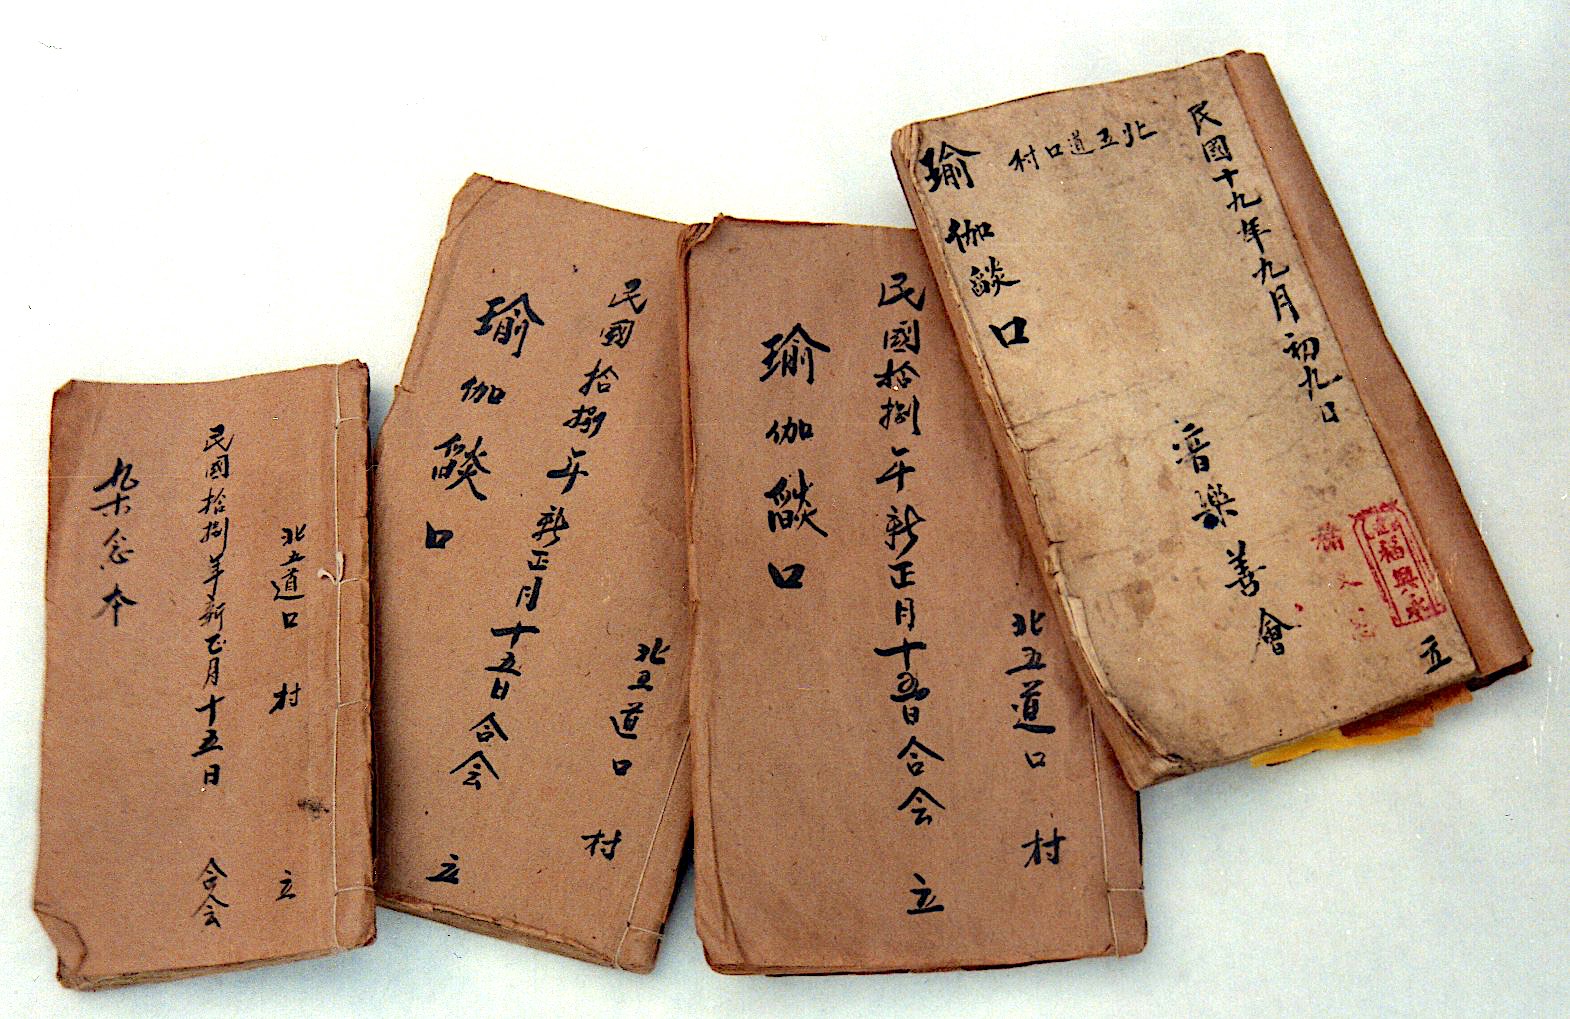 北五道口村 立
民國拾捌年新正月十五日 合会
杂念本
北五道口村
民國拾捌年新正月十五日合会 立
瑜伽燄口
北五道口村
民國拾捌年新正月十五日合会 立
瑜伽燄口
民國十九年九月初九日
北五道口村
音樂善會 立
瑜伽燄口
福興永